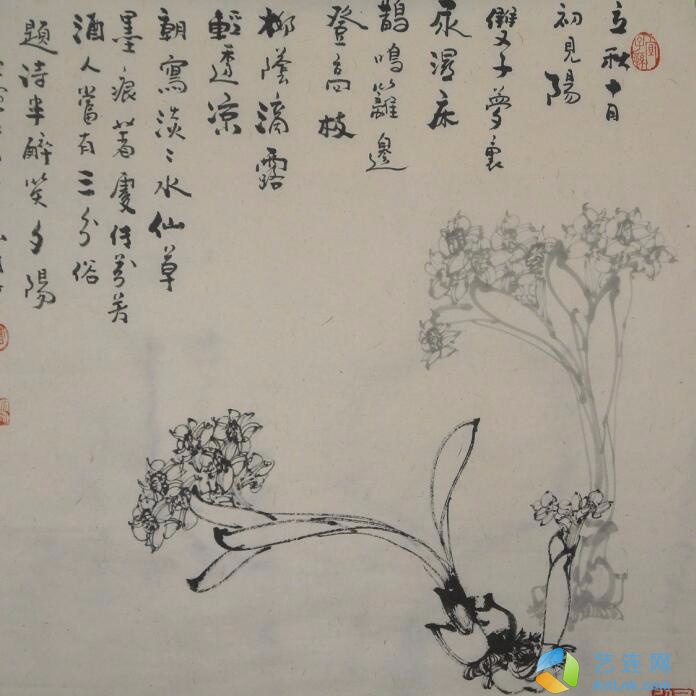 立秋十日
初見陽
雙子夢裏
尿濕床
鵲鳴籬邊
登高枝
柳蔭滴露
輕透凉
朝寫淡〻水仙草
墨痕著處傳芬芳
酒人當有三分俗
題詩半醉笑夕陽
艺连网